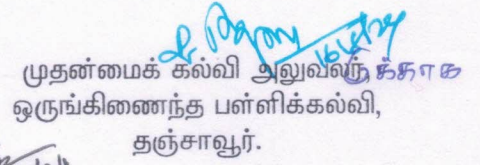 முதன்மைக் கல்வி அலுவலருக்காக
ஒருங்கிணைந்த பள்ளிக்கல்வி,
தஞ்சாவூர்.